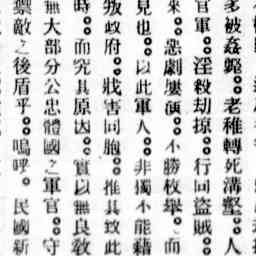 多被姦斃。老稚轉死溝壑。人
官軍。淫殺劫掠。行同盜賊。
來。悲劇屢演。不勝枚舉。而
見也。以此軍人。非獨不能藉
叛政府。戕害同胞。推其致此
時。而究其原因。實以無良教
無大部分公忠體國之軍官。守
禦敵之後盾乎。嗚呼。民國新